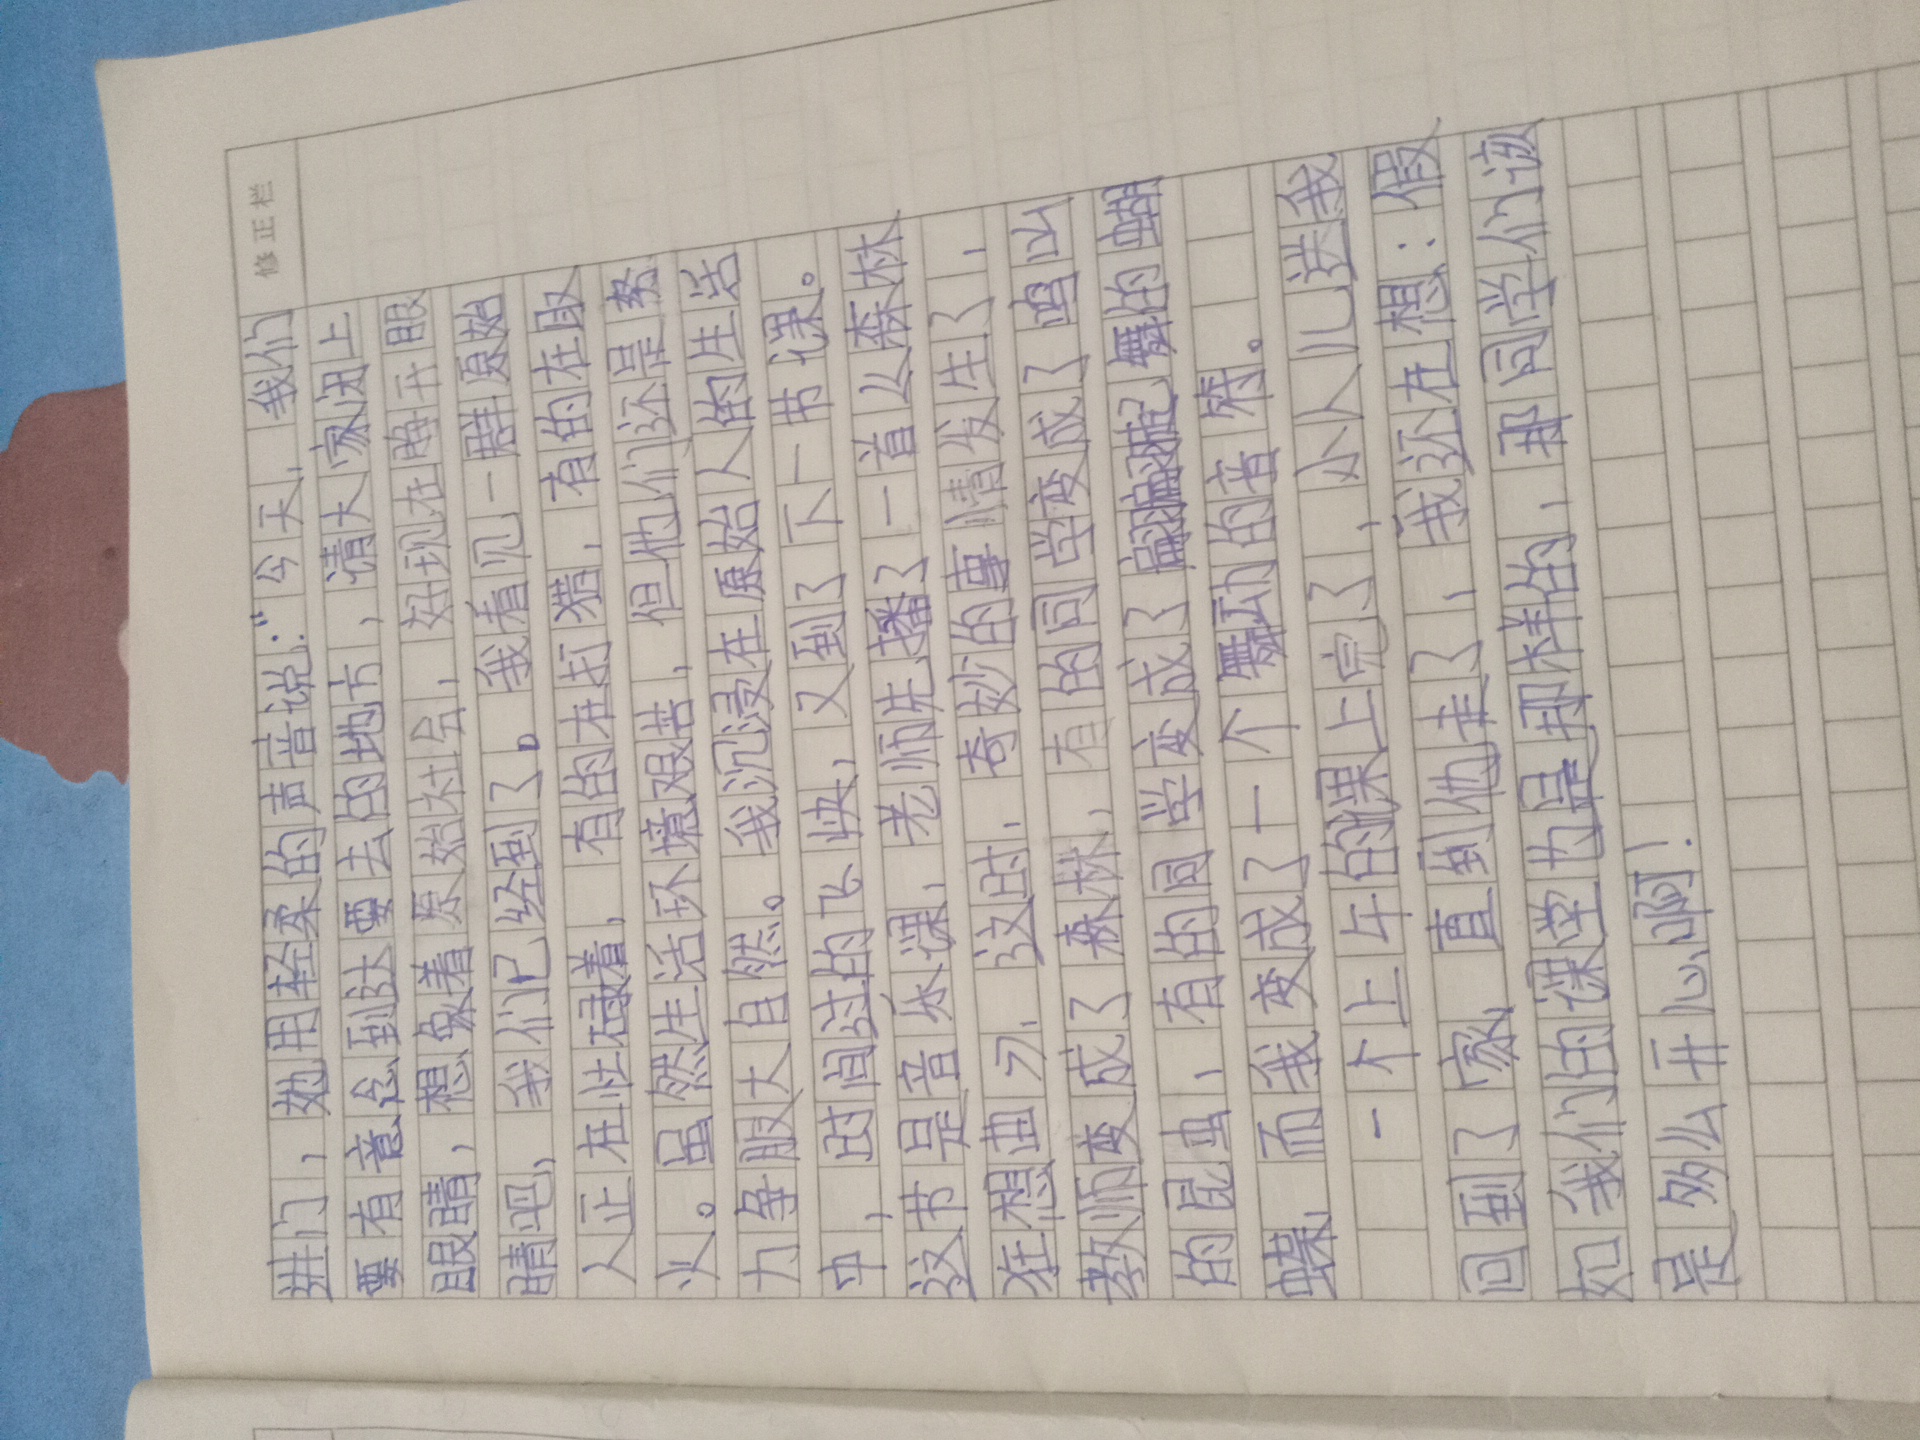 修正栏
进门，她用轻柔的声音说：“今天，我们
要有意念到达要去的地方，请大家闭上
眼睛，想象着原始社会，好现在睁开眼
睛吧，我们已经到了。我看见一群原始
人正在忙碌着，有的在打猎，有的在取
火。虽然生活环境艰苦，但他们还是努
力争服大自然。我沉浸在原始人的生活
中，时间过的飞快，又到了下一节课。
这节是音乐课，老师先播了一首么森林
狂想曲》，这时，奇妙的事情发生了，
教师变成了森林，有的同学变成了鸣叫
的昆虫，有的同学变成了翩翩起舞的蝴
蝶，而我变成了一个舞动的音符。
一个上午的课上完了，小人儿送我
回到了家，直到他走了，我还在想：假
如我们的课堂也是那样的，那同学们该
是多么开心啊！